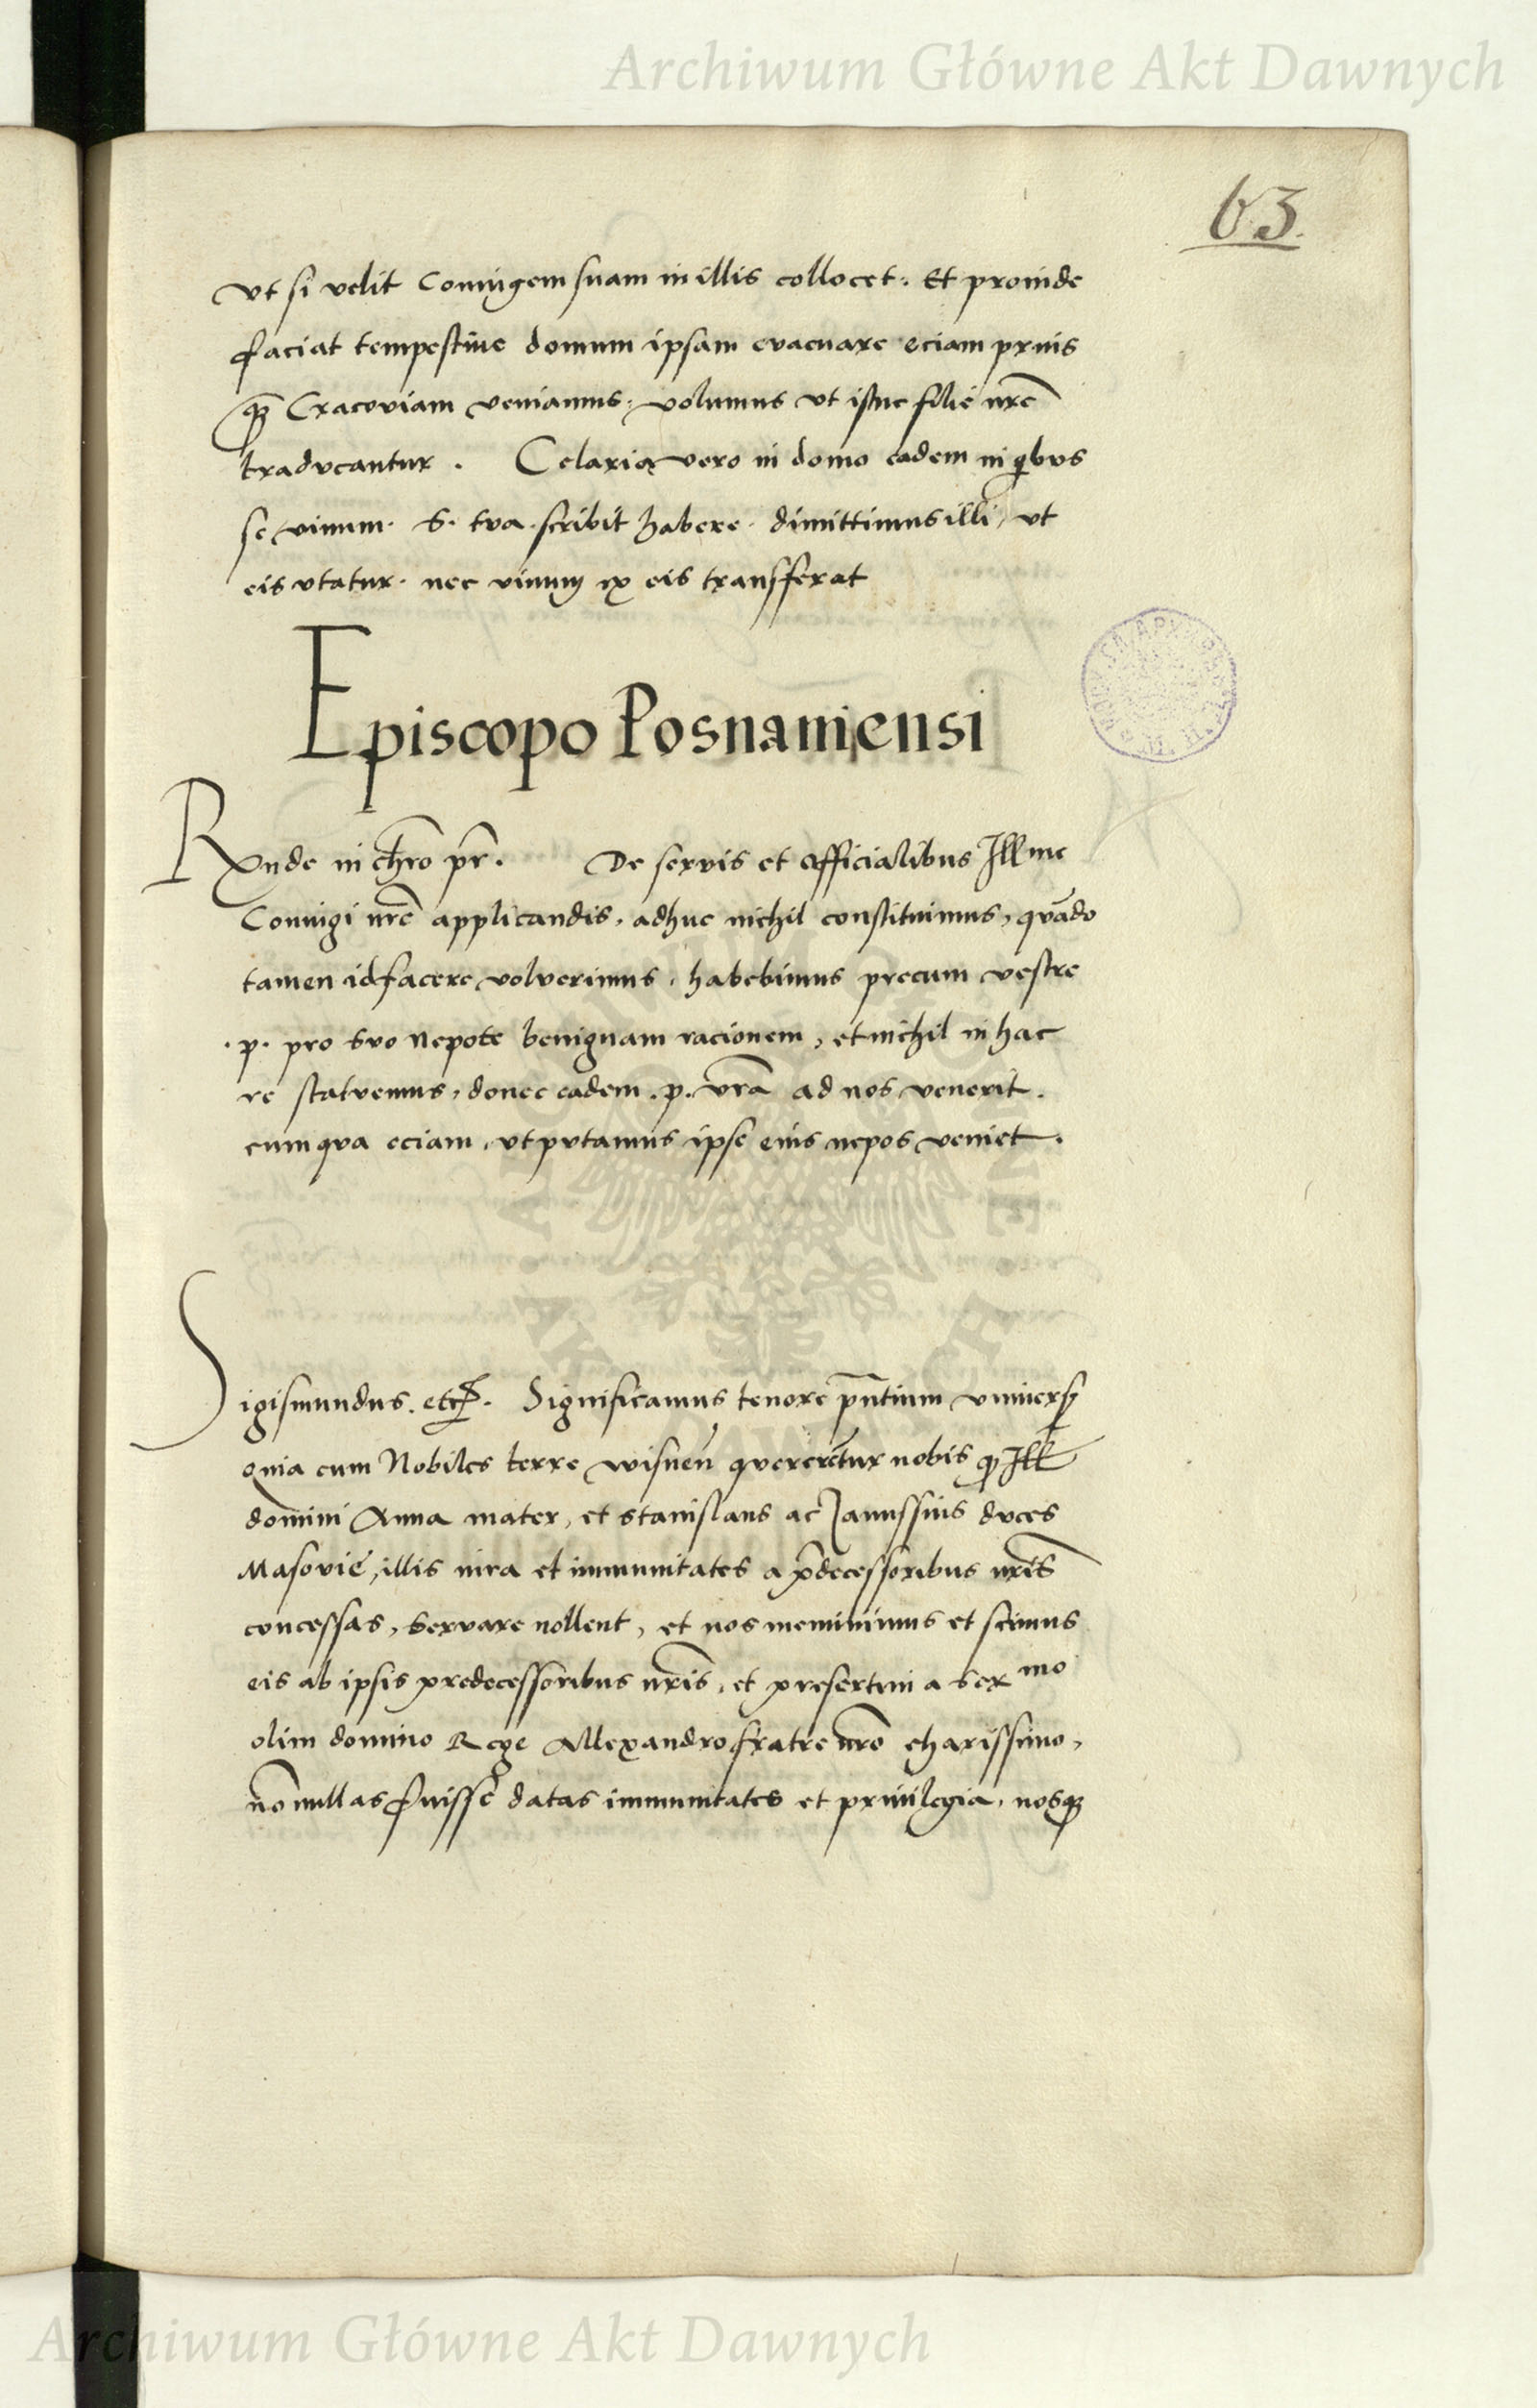 Archiwum Główne Akt Dawnych
63.
Vt si velit Coniugem suam in illis collocet: Et proinde
faciat tempestiue domum ipsam evacuare eciam prius
qz̄ Cracoviam veniamus: volumus vt istuc filie nr̄e
traducantur. Celaria vero in domo eadem in qibvs
se vinum. S. tva. scribit habere. dimittimus illi, vt
eis vtatur. nec vinum ex eis transfferat
Episcopo Posnaniensi
Rxnde in chr̄o pr̄. De servis et officialibus Illme
Coniugi nr̄e applicandis, adhuc nichil constituimus, qvādo
tamen id facere volverimus, habebimus precum vestre
.p. pro svo nepote benignam racionem, et nichil in hac
re statvemus, donec eadem .p. vr̄a ad nos venerit.
cum qva eciam, vt pvtamus ipse eius nepos veniet.
Sigismundus. etc. Significamus tenore pn̄tium vniuers
Quia cum Nobiles terre wisnen̄ qverērētur nobis q Ill
domini Anna mater, et Stanislaus ac Janussius dvces
Masovie, illis iura et immunitates a p̄decessoribus nr̄is
concessas, servare nollent, et nos meminimus et scimus
eis ab ipsis predecessoribus nr̄is, et presertim a Ser mo
olim domino Rege Allexandro fratre nr̄o charissimo,
nōnullas fuisse datas immunitates et priuilegia, nosqz
Archiwum Główne Akt Dawnych